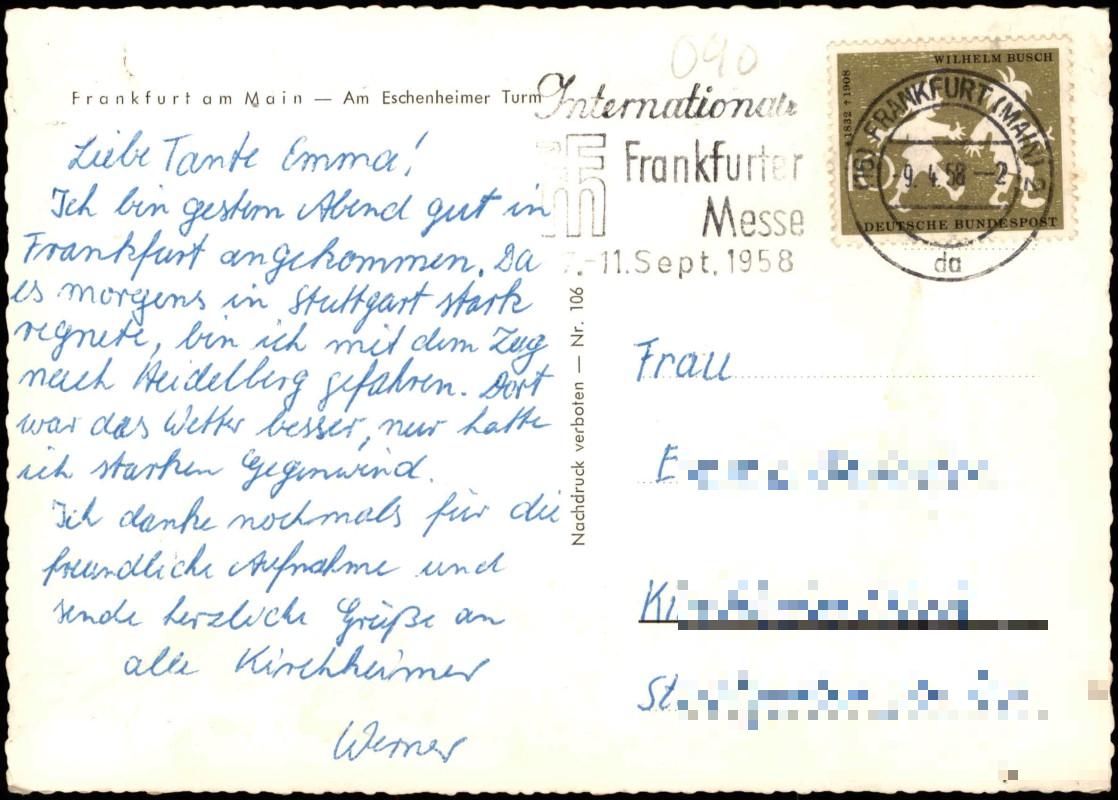 Frankfurt am Main — Am Eschenheimer Turm
Liebe Tante Emma!
Ich bin gestern Abend gut in
Frankfurt angekommen. Da
es morgens in Stuttgart stark
regnete, bin ich mit dem Zug
nach Heidelberg gefahren. Dort
war das Wetter besser, nur hatte
ich starken Gegenwind.
Ich danke nochmals für die
freundliche Aufnahme und
sende herzliche Grüße an
alle Kirchheimer
Werner
Nachdruck verboten — Nr. 106
090
Internationale
Frankfurter
Messe
7.-11. Sept. 1958
WILHELM BUSCH
1832 † 1908
DEUTSCHE BUNDESPOST
(16) FRANKFURT (MAIN) 2
9.4.58 —2
da
Frau
E
Ki
St